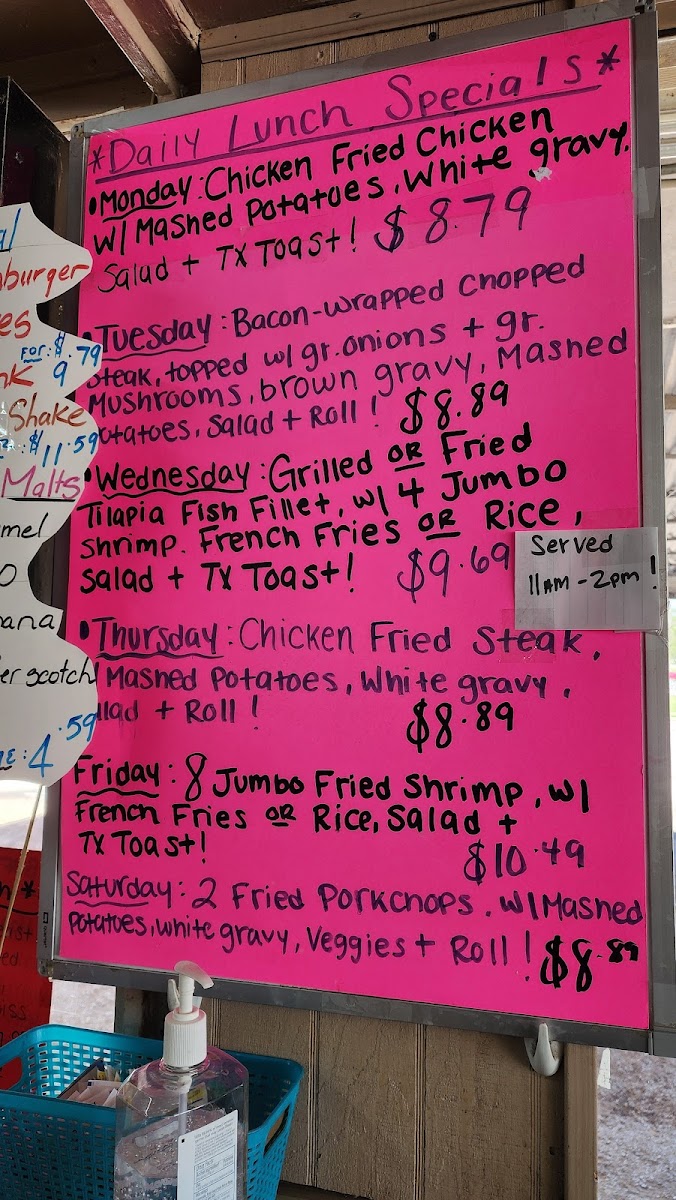 *Daily Lunch Specials*
•Monday: Chicken Fried Chicken
W/ Mashed Potatoes, White gravy,
Salad + TX Toast! $8.79
•Tuesday: Bacon-wrapped chopped
steak, topped w/ gr. onions + gr.
Mushrooms, brown gravy, Mashed
otatoes, Salad + Roll! $8.89
•Wednesday: Grilled OR Fried
Tilapia Fish Fillet, w/ 4 Jumbo
Shrimp. French Fries OR Rice,
Salad + TX Toast! $9.69
Served
11AM-2pm!
•Thursday: Chicken Fried Steak,
Mashed Potatoes, White gravy,
lad + Roll! $8.89
Friday: 8 Jumbo Fried Shrimp, w/
French Fries OR Rice, Salad +
TX Toast! $10.49
Saturday: 2 Fried Porkchops, w/ Mashed
Potatoes, white gravy, Veggies + Roll! $8.89
al
burger
es
FOR: $
nk 9.79
Shake
$11.59
Malts
mel
o
ana
er scotch
E: 4.59